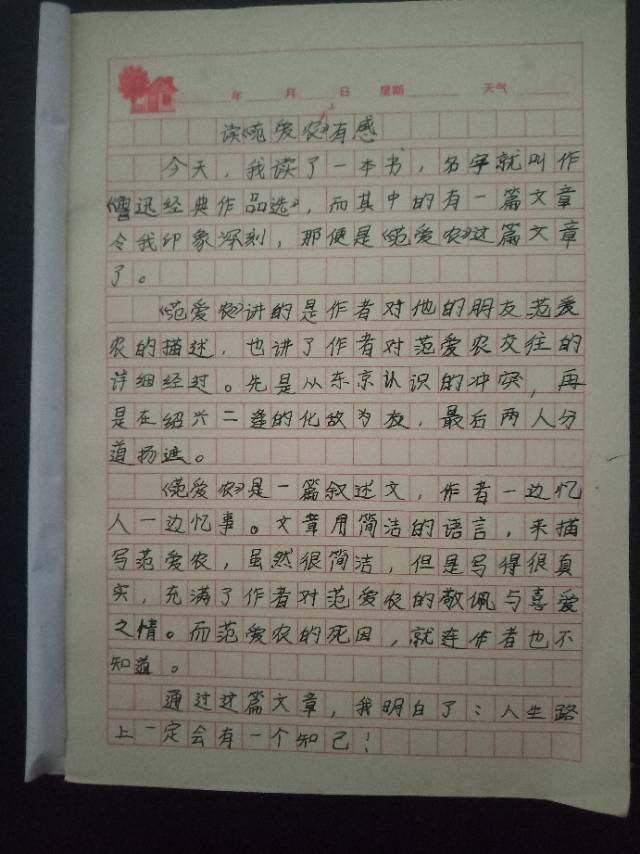 年 月 日 星期 天气
读《范爱农》有感
今天，我读了一本书，名字就叫作
《鲁迅经典作品选》，而其中的有一篇文章
令我印象深刻，那便是《范爱农》这篇文章
了。
《范爱农》讲的是作者对他的朋友范爱
农的描述，也讲了作者对范爱农交往的
详细经过。先是从东京认识的冲突，再
是在绍兴二逢的化敌为友，最后两人分
道扬遮。
《范爱农》是一篇叙述文，作者一边忆
人一边忆事。文章用简洁的语言，来描
写范爱农，虽然很简洁，但是写得很真
实，充满了作者对范爱农的敬佩与喜爱
之情。而范爱农的死因，就连作者也不
知道。
通过这篇文章，我明白了：人生路
上一定会有一个知己！